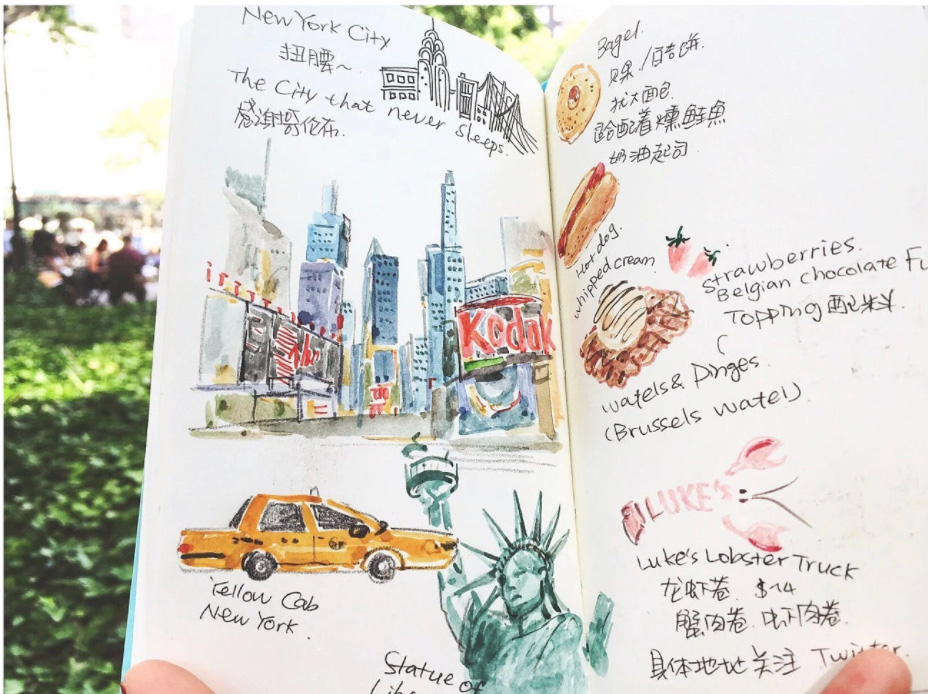 New York City
扭腰~
The City that never sleeps.
感谢哥伦布.
Kodak
Yellow Cab
New York.
Statue of
Bagel.
贝果/百吉饼.
犹太面包
配着燻鮭魚
奶油起司.
Hot dog.
whipped cream.
strawberries.
Belgian chocolate Fu
Topping 配料.
watels & Dinges.
(Brussels watel).
LUKE's
Luke's Lobster Truck
龙虾卷. $14
蟹肉卷. 虾肉卷.
具体地址关注 Twitter.